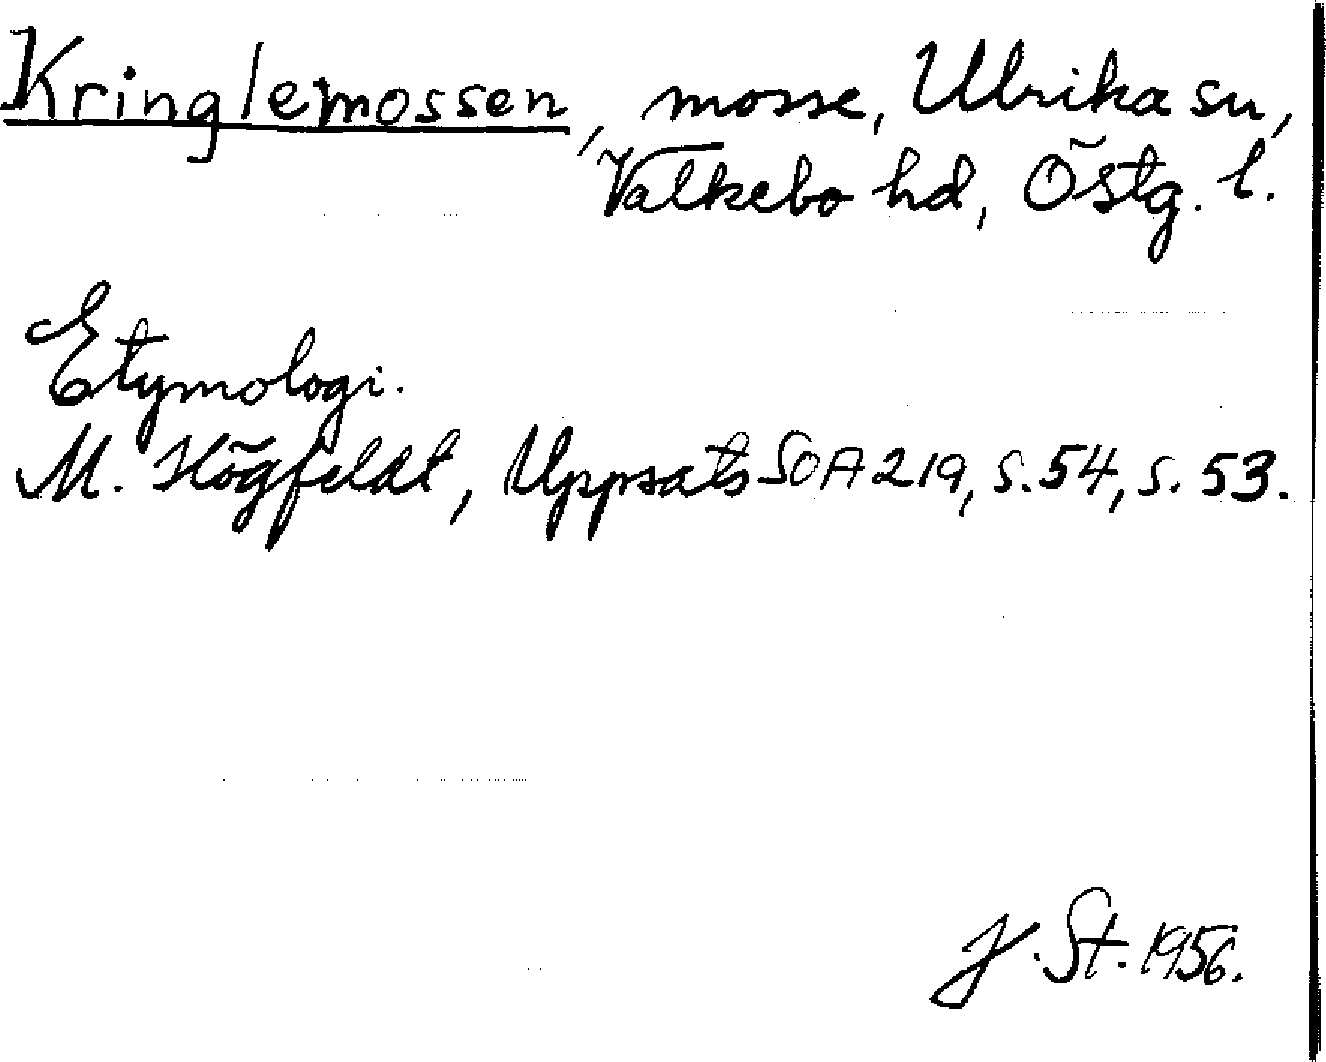 Kringlemossen, mosse, Ulrika sn,
Valkebo hd, Östg. l.
Etymologi.
M. Högfeldt, Uppsats SOA 219, s. 54, s. 53.
J. St. 1956.